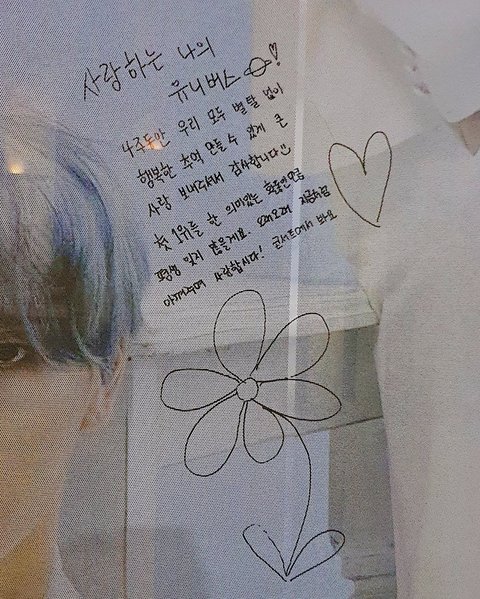 사랑하는 나의
유니버스
4주동안 우리 모두 별탈 없이
행복한 추억 만들 수 있게 큰
사랑 보내주셔서 감사합니다
첫 1위를 한 의미있는 활동인만큼
평생 잊지 않을게요 오래오래 지금처럼
아껴주며 사랑합시다! 콘서트에서 봐요